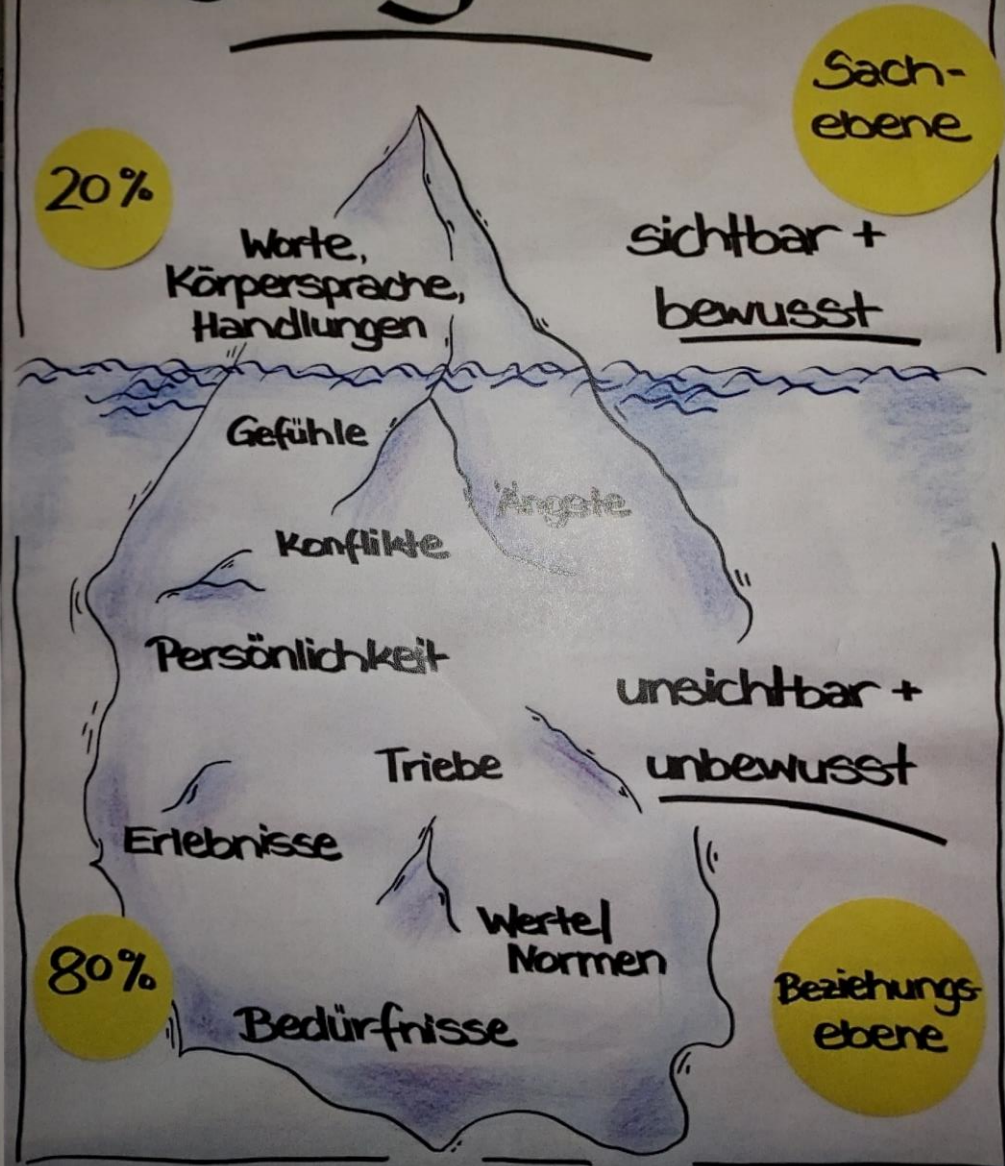 Sach-
ebene
20%
Worte,
Körpersprache,
Handlungen
sichtbar +
bewusst
Gefühle
Ängste
Konflikte
Persönlichkeit
unsichtbar +
unbewusst
Triebe
Erlebnisse
Werte/
Normen
80%
Bedürfnisse
Beziehungs-
ebene